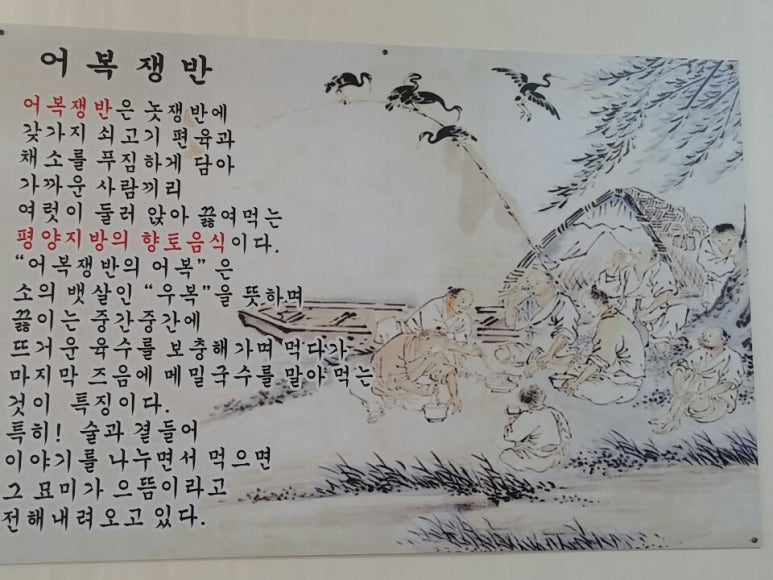 어복쟁반
어복쟁반은 놋쟁반에
갖가지 쇠고기 편육과
채소를 푸짐하게 담아
가까운 사람끼리
여럿이 둘러 앉아 끓여먹는
평양지방의 향토음식이다.
“어복쟁반의 어복” 은
소의 뱃살인 “우복”을 뜻하며
끓이는 중간중간에
뜨거운 육수를 보충해가며 먹다가
마지막 즈음에 메밀국수를 말아 먹는
것이 특징이다.
특히! 술과 곁들어
이야기를 나누면서 먹으면
그 묘미가 으뜸이라고
전해내려오고 있다.